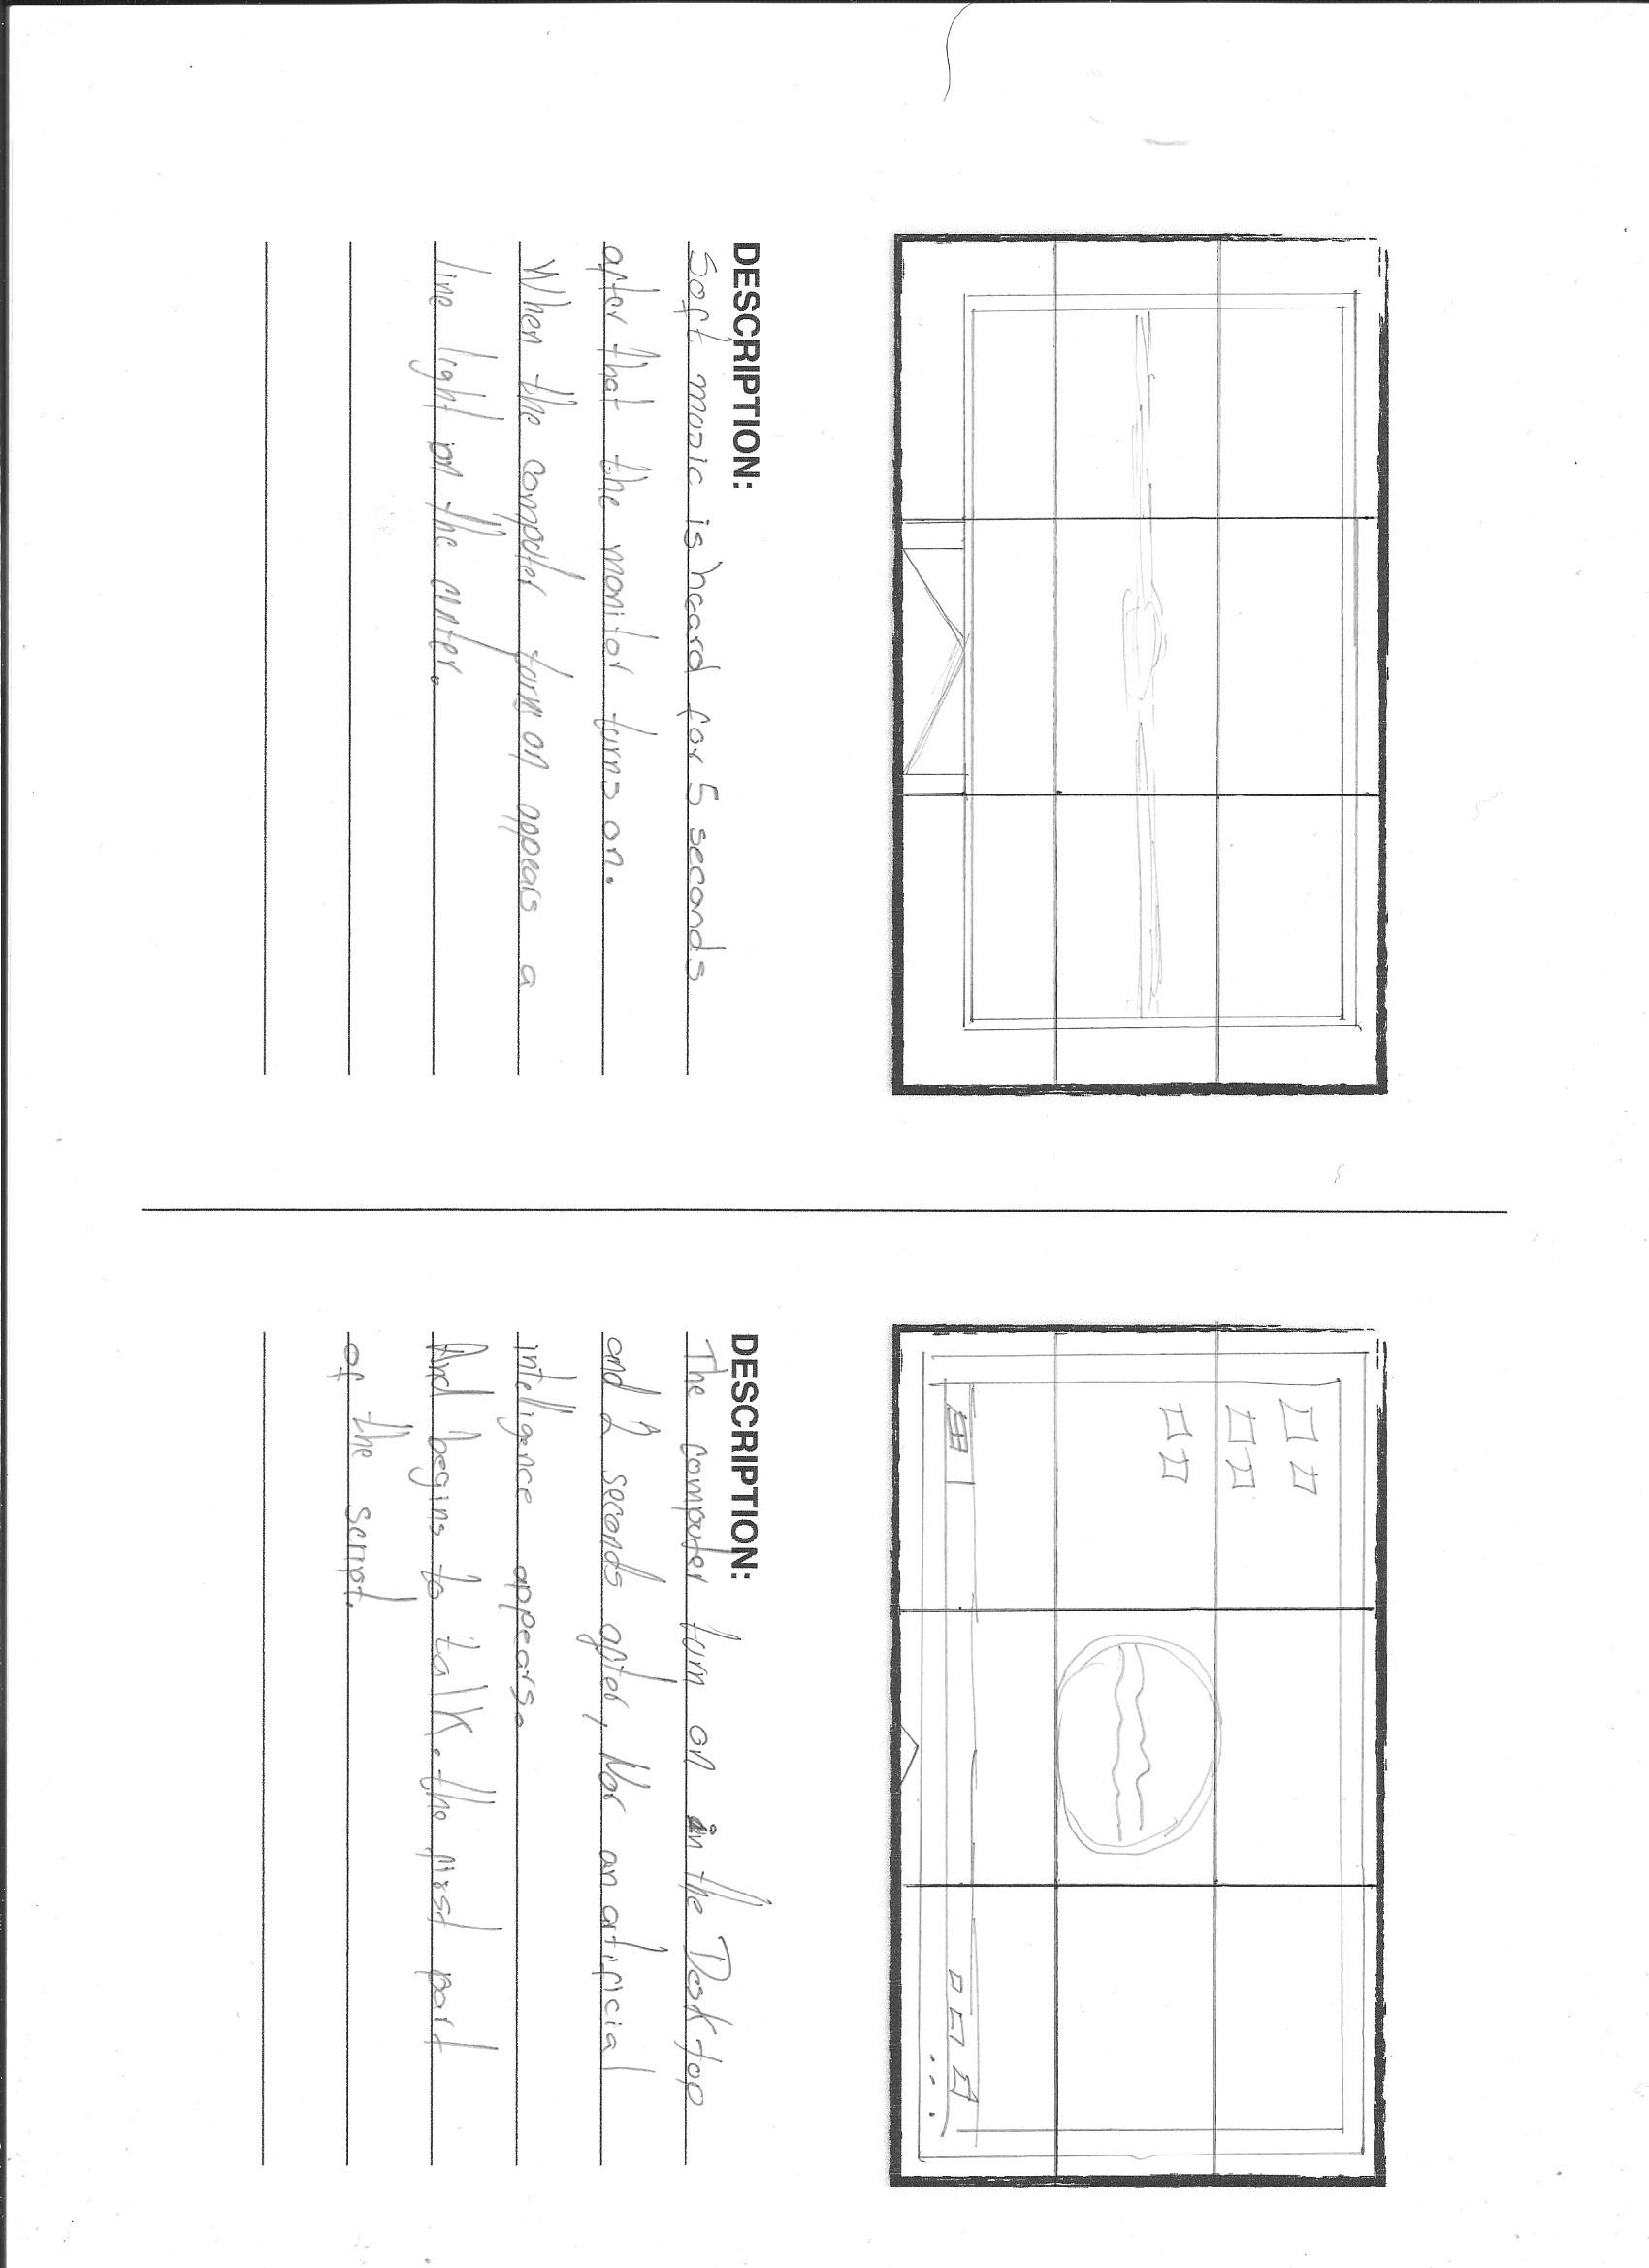 DESCRIPTION:
Soft muzic is heard for 5 seconds
after that the monitor turns on.
When the computer turn on appears a
line light on the center.
DESCRIPTION:
The computer turn on in the Desktop
and 2 seconds after, an artificial
intelligence appears.
And begins to talk. the first part
of the script.